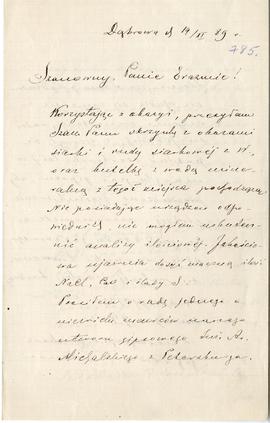 Dąbrowa d 14/XI 89 r.
785.
Szanowny Panie Erazmie!
Korzystając z okazyi, przesyłam
Szan. Panu skrzynkę z okazami
siarki i rudy siarkowej z W.
oraz butelkę z wodą mine-
ralną z tegoż miejsca pochodzącą.
Nie posiadając urządzeń odpo-
wiednich, nie mogłem uskutecz-
nić analizy ilościowej. Jakościo-
wa wyjaśnia dość znaczną ilość
NaCl, CaS i ślady J.
Prosiłem o radę jednego z
znawców naszego
utworu gipsowego inż. A.
Michalskiego z Petersburga.